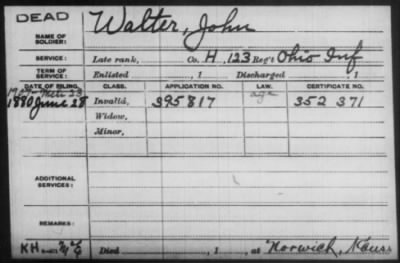 DEAD
NAME OF SOLDIER: Walter, John
SERVICE: Late rank, Co. H, 123 Reg't Ohio Inf
TERM OF SERVICE: Enlisted , 1 Discharged , 1
DATE OF FILING. CLASS. APPLICATION NO. LAW. CERTIFICATE NO.
23 age
1880 June 28 Invalid, 395817 352 371
Widow,
Minor,
ADDITIONAL SERVICES:
REMARKS:
KH Died , 1 , at Norwich, Kans